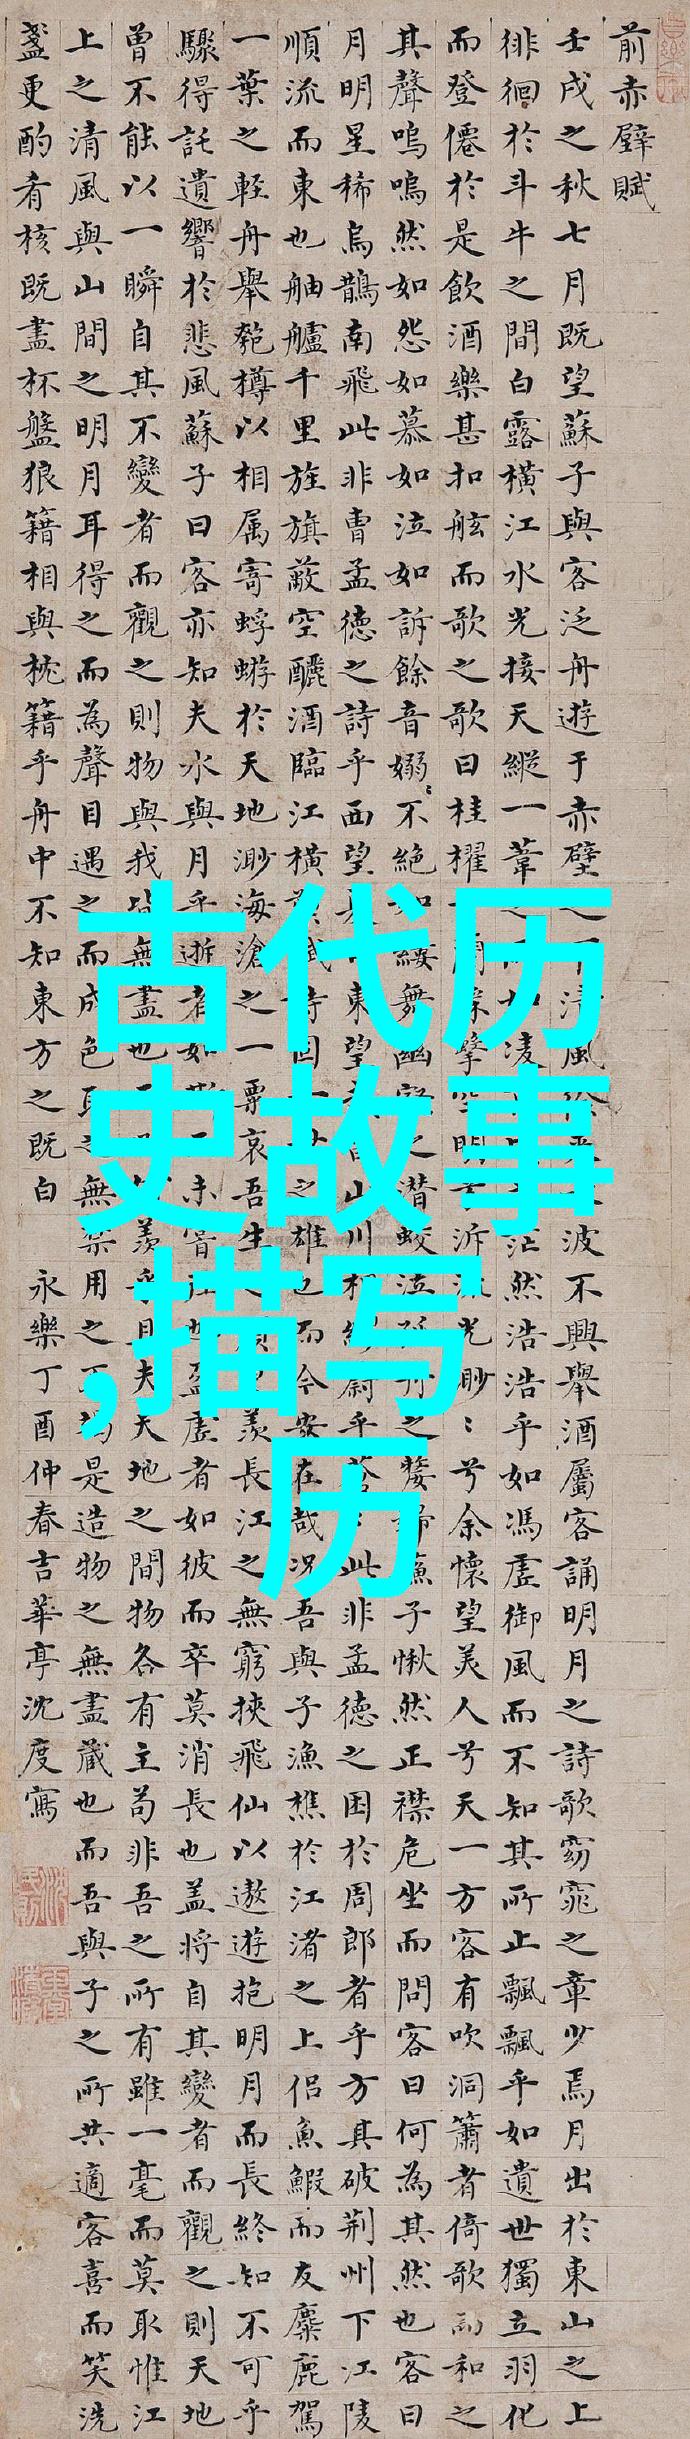 前赤壁賦
壬戌之秋七月既望蘇子與客泛舟遊于赤壁清風波不興舉酒屬客誦明月之詩歌窈窕之章少焉月出於東山之上
徘徊於斗牛之間白露橫江水光接天縱一葦如凌茫然浩浩乎如馮虛御風而不知其所止飄飄乎如遺世獨立羽化
而登僊於是飲酒樂甚扣舷而歌之歌曰桂櫂蘭槳擊空明兮泝流光渺〻兮余懷望美人兮天一方客有吹洞簫者倚歌而和之
其聲嗚嗚然如怨如慕如泣如訴餘音嫋〻不絕如縷舞幽壑之潛蛟泣孤舟之嫠婦蘇子愀然正襟危坐而問客曰何為其然也客曰
月明星稀烏鵲南飛此非曹孟德之詩乎西望東望山川相繆鬱乎蒼〻此非孟德之困於周郎者乎方其破荊州下江陵
順流而東也舳艫千里旌旗蔽空釃酒臨江橫賦詩固一世之雄也而今安在哉況吾與子漁樵於江渚之上侶魚鰕而友麋鹿駕
一葉之輕舟舉匏樽以相属寄蜉蝣於天地渺海滄之一粟哀吾生羨長江之無窮挾飛仙以遨遊抱明月而長終知不可乎
驟得託遺響於悲風蘇子曰客亦知夫水與月乎逝者如斯未嘗往也盈虛者如彼而卒莫消長也盖將自其變者而觀之則天地
曾不能以一瞬自其不變者而觀之則物與我皆無盡也羨乎且夫天地之間物各有主苟非吾之所有雖一毫而莫取惟江
上之清風與山間之明月耳得之而為聲目遇之而成色取之無禁用之不竭是造物之無盡藏也而吾與子之所共適客喜而笑洗
盞更酌肴核既盡杯盤狼籍相與枕籍乎舟中不知東方之既白 永樂丁酉仲春吉華亭沈度寫
古代历
史故事
,描写
历